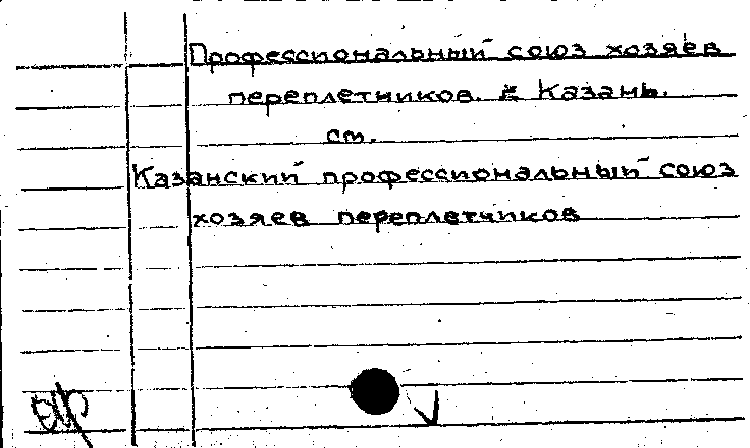 Профессиональный союз хозяев
переплетчиков. Казань.
см.
Казанский профессиональный союз
хозяев переплетчиков